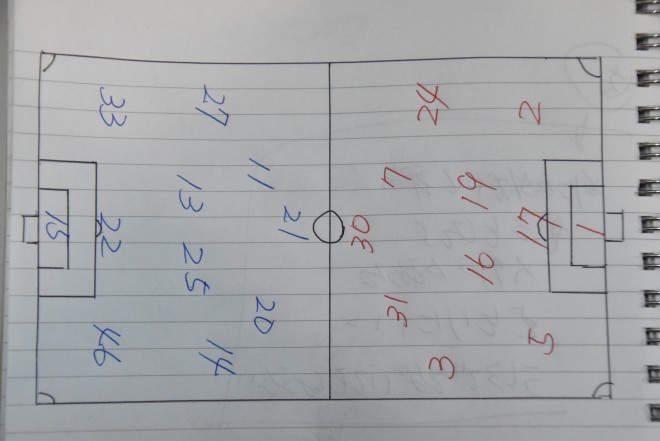 33 27 24 2
13 11 7 19
15 22 21 30 17 1
25 16
20 31
46 14 3 5